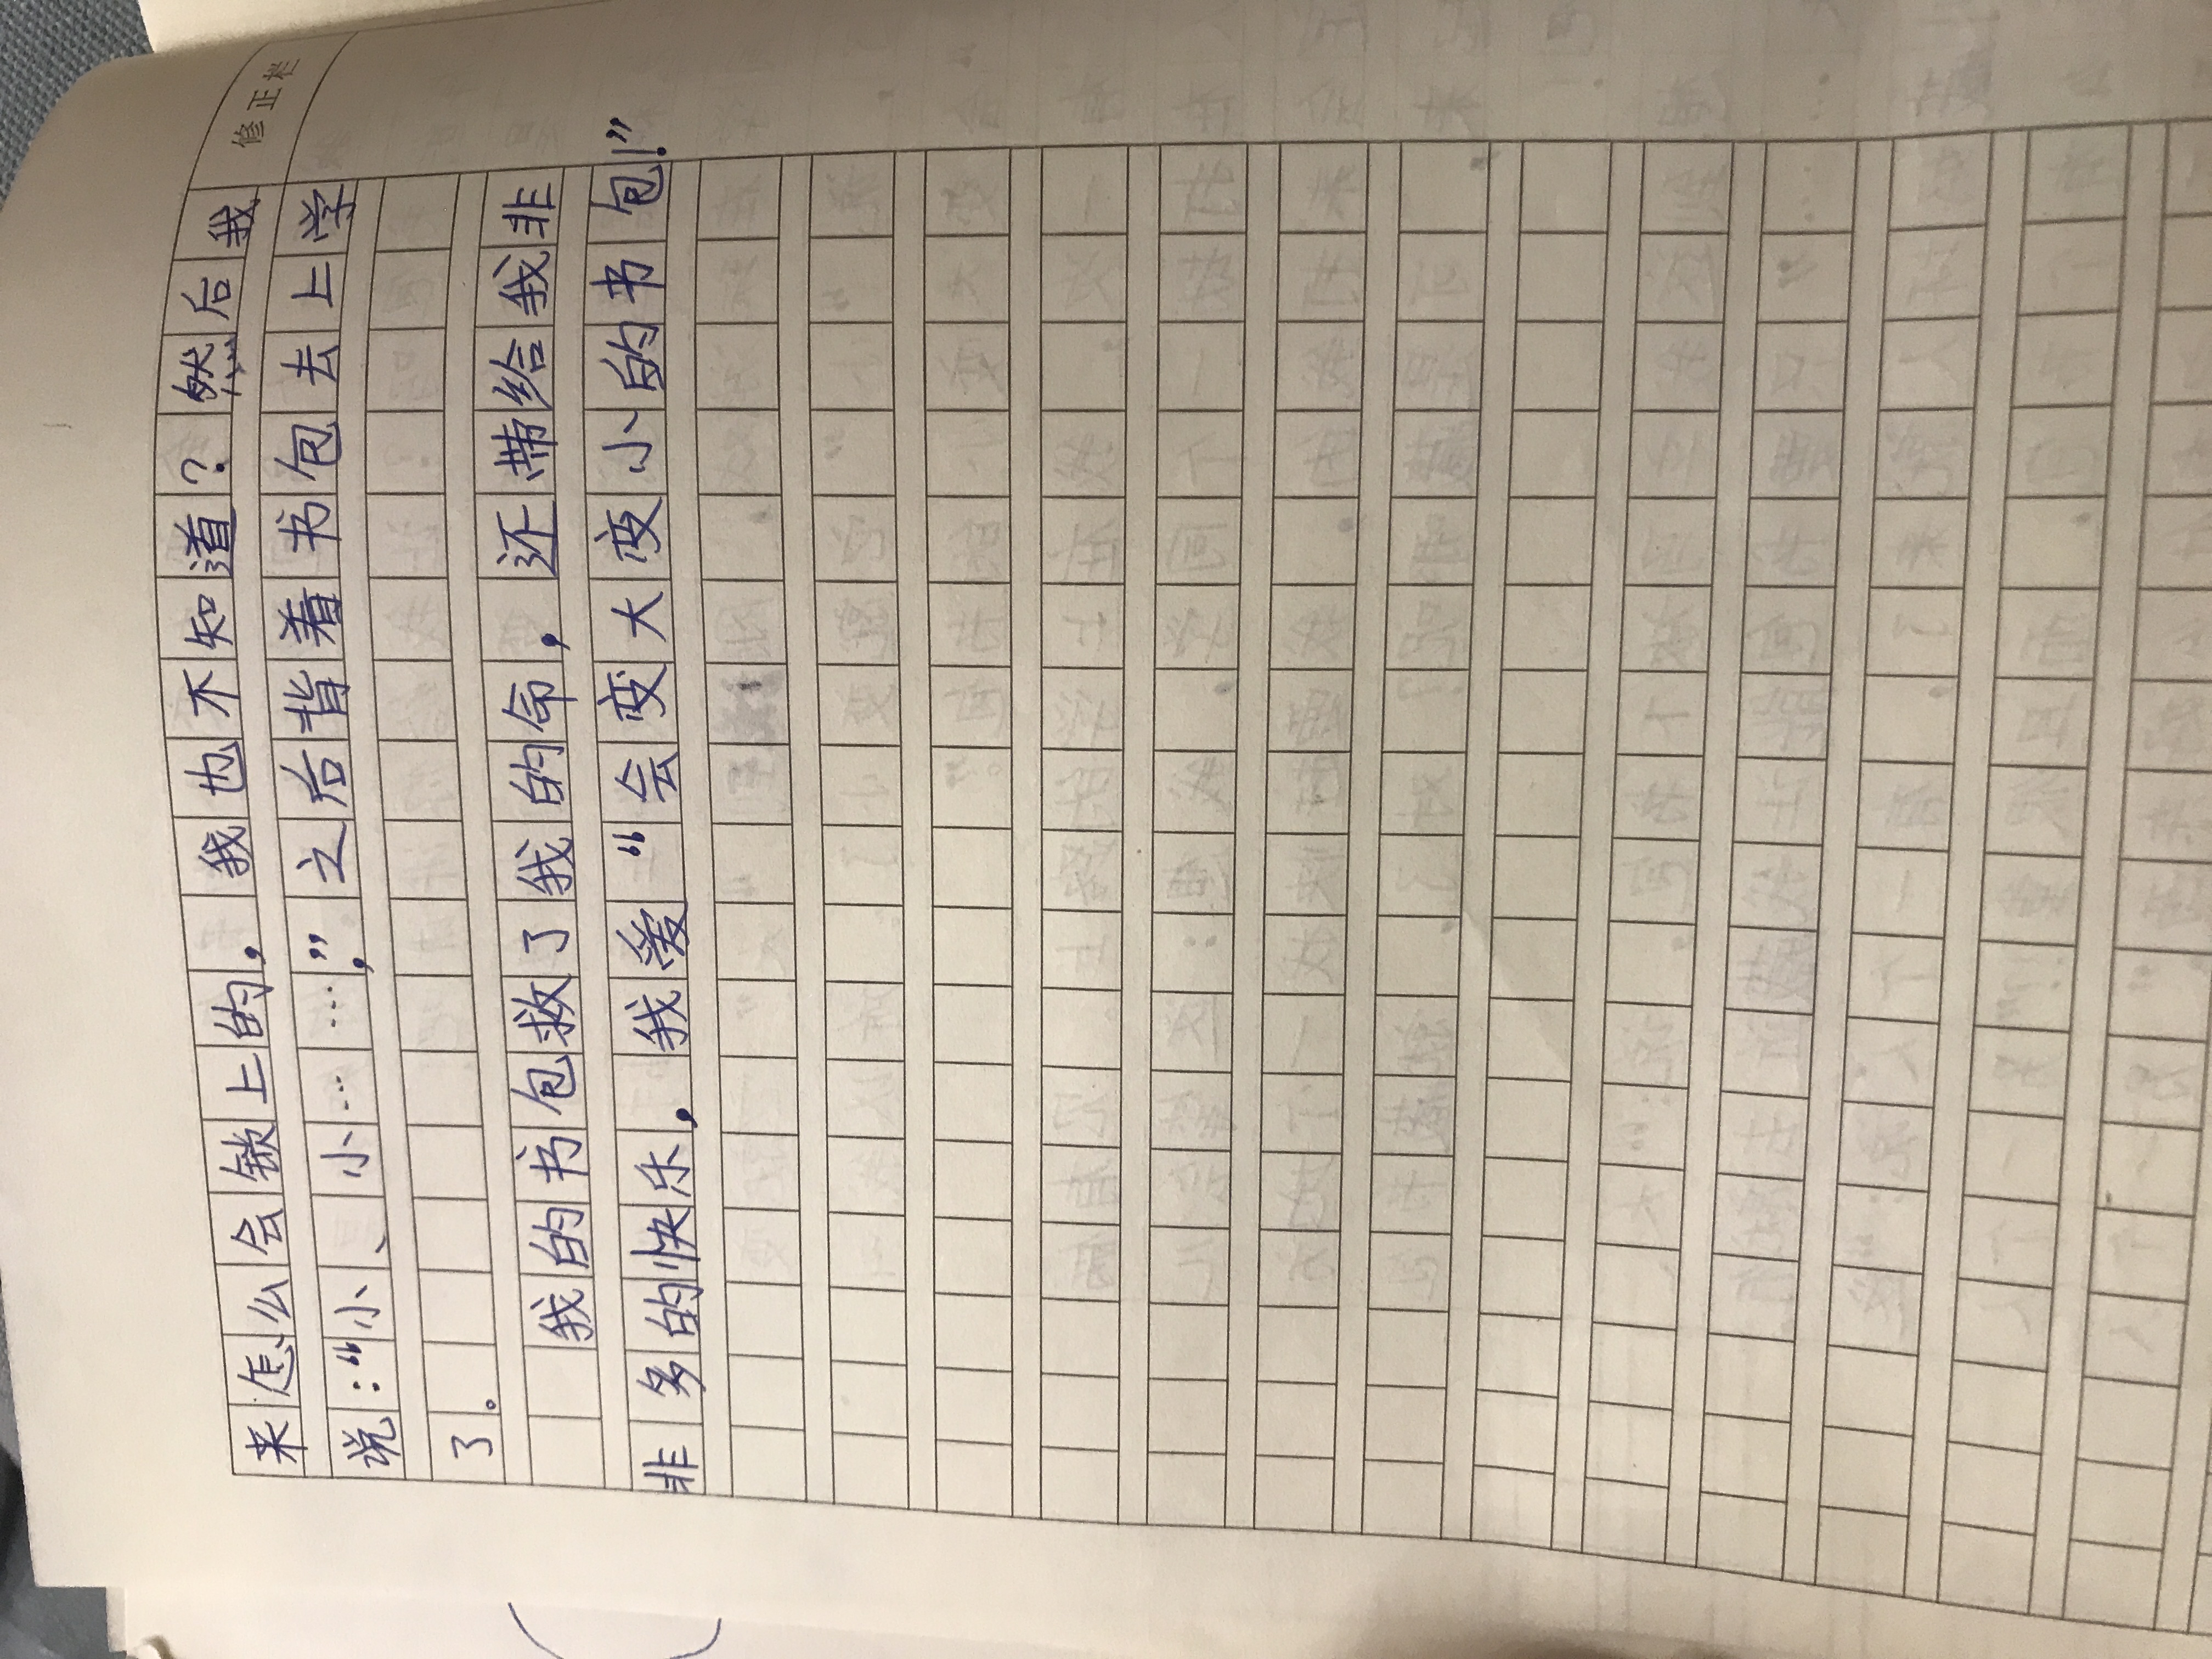 修正栏
来怎么会锁上的，我也不知道？然后我
说：“小、小……”，之后背着书包去上学
了。
我的书包救了我的命，还带给我非
非多的快乐，我爱“会变大变小的书包！”